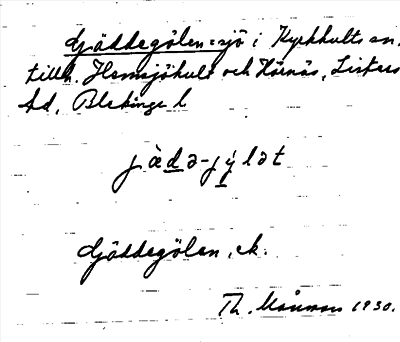 Gäddegölen = sjö i Kyrkhults sn.
tillh. Hemsjöhult och Hörnäs, Listers
hd, Blekinge l
jàdə-jy̱lət
Gäddegölen, ek.
Th. Månsson 1930.